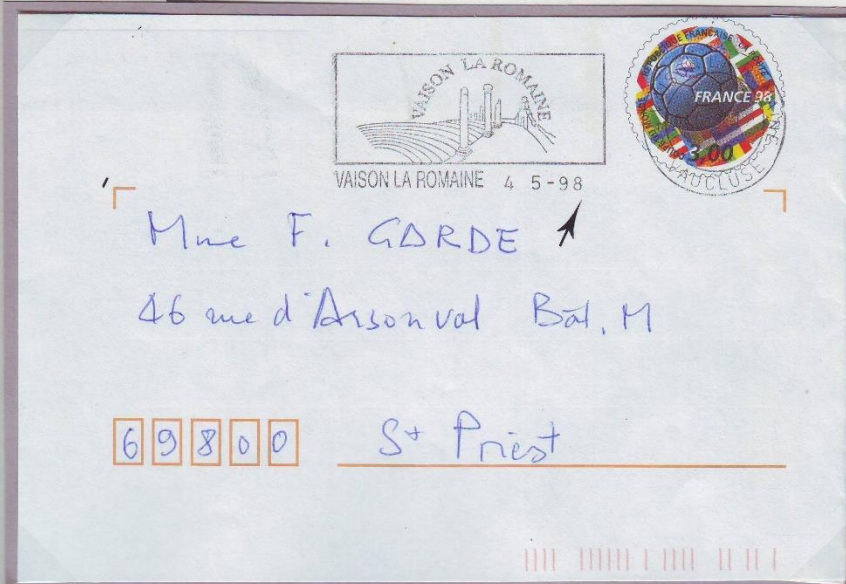 VAISON LA ROMAINE
VAISON LA ROMAINE 4 5-98
RÉPUBLIQUE FRANÇAISE
FRANCE 98
3,00
VAUCLUSE
Mme F. GARDE
46 rue d'Arsonval Bât. M
69800 St Priest